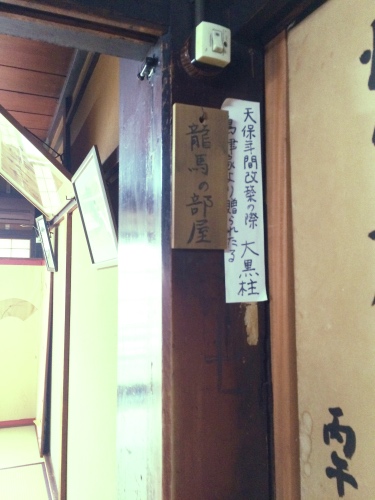 龍馬の部屋
天保年間改築の際
島津家より贈られたる
大黒柱
丙午